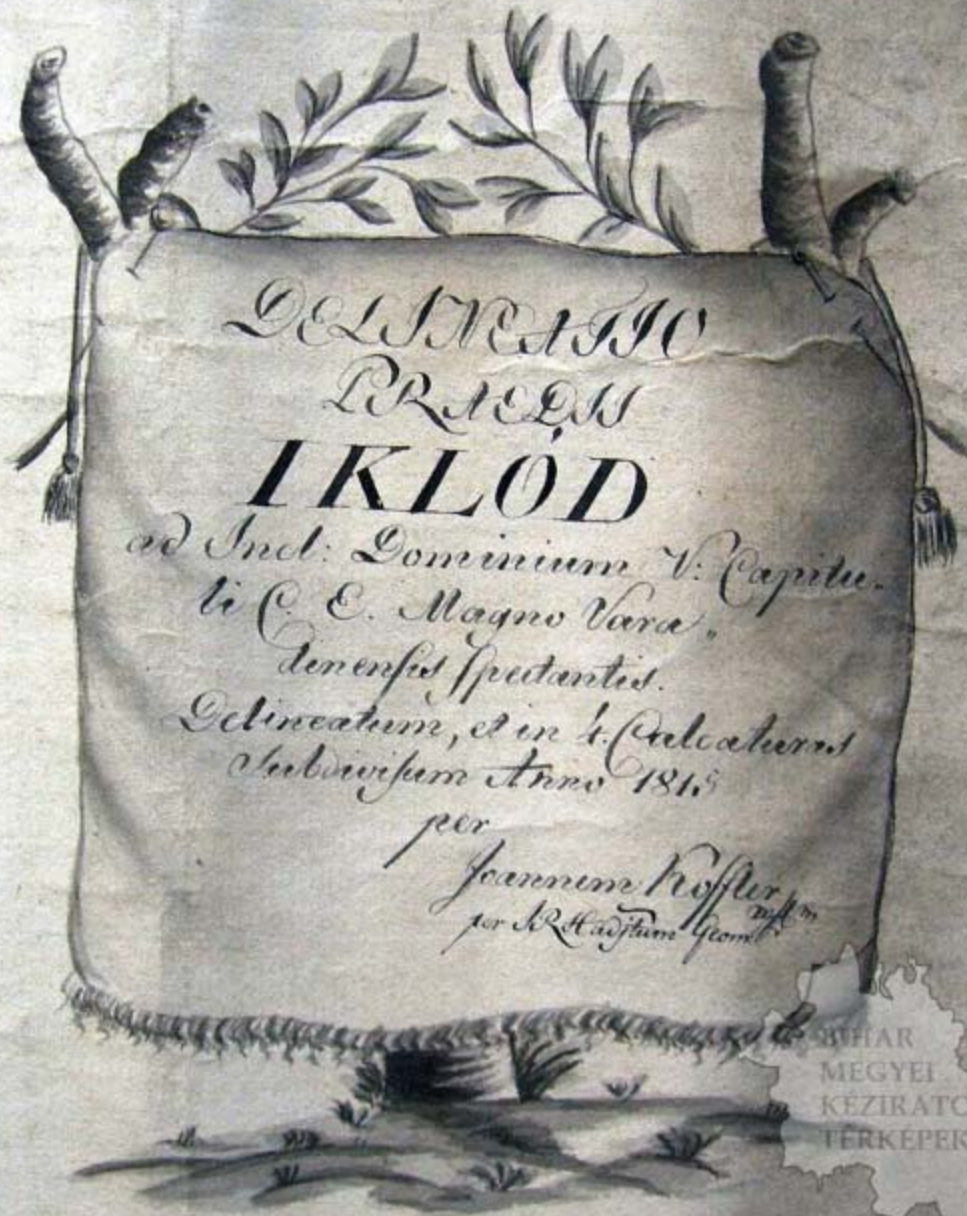 DELINEATIO
PRAEDII
IKLÓD
ad Incl: Dominium V: Capitu-
li C. E. Magno Vara„
dinensis spectantis.
Delineatum, et in 4. Calcaturas
Subdivisum Anno 1815
per
Joannem Koffler
per I R Hadjtum Geom
BIHAR
MEGYEI
KÉZIRATO
TÉRKÉPEK